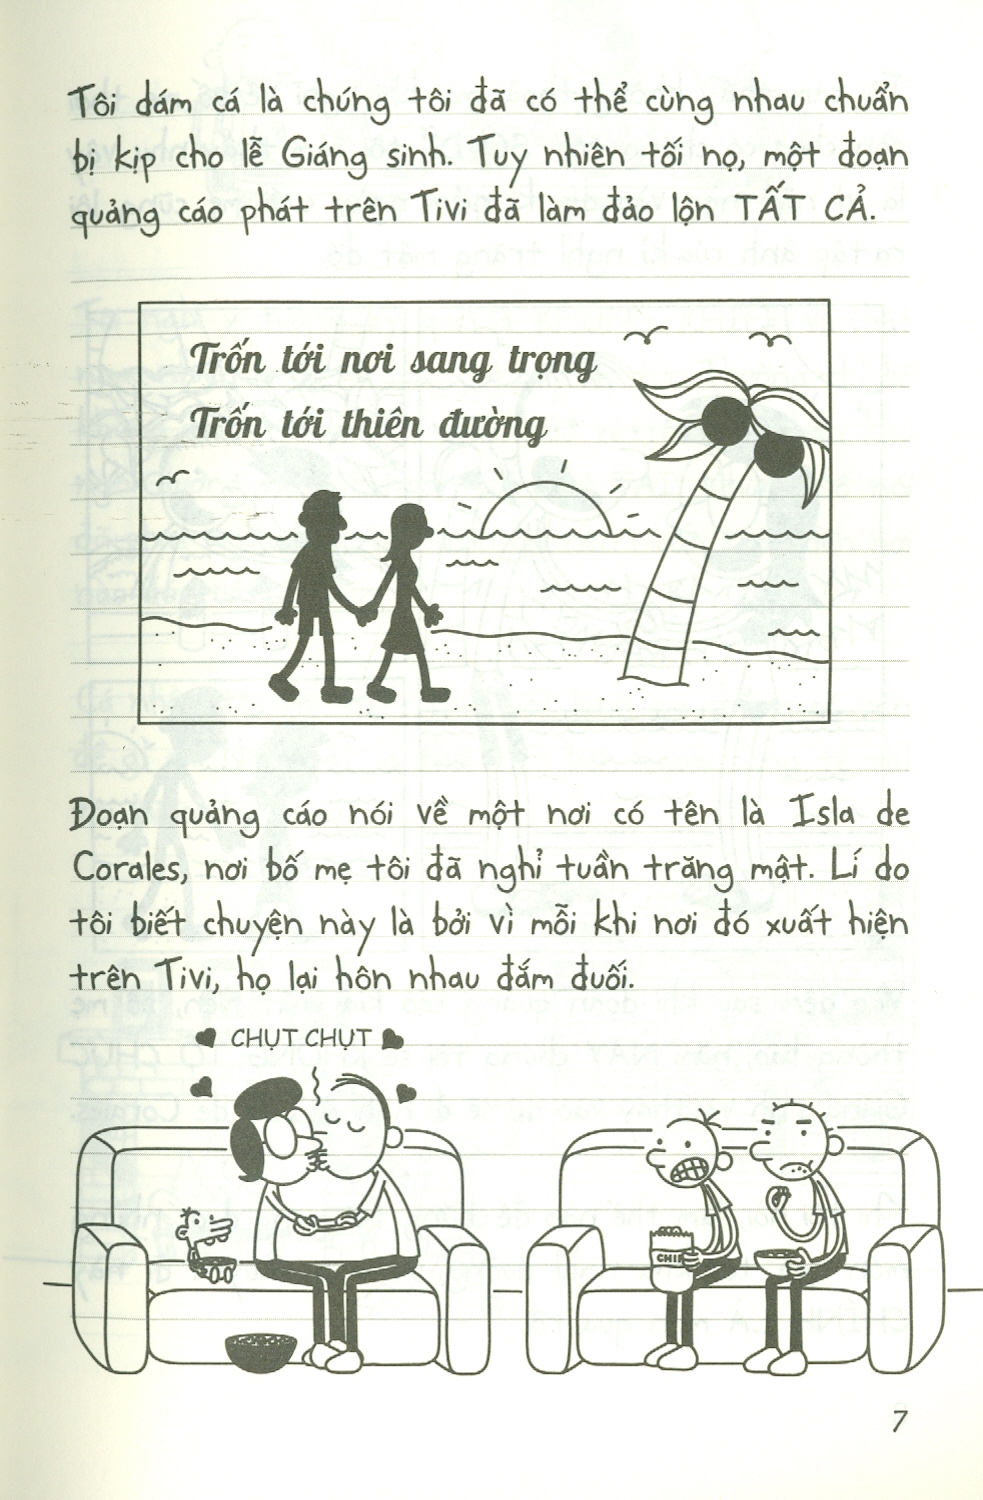 Tôi dám cá là chúng tôi đã có thể cùng nhau chuẩn
bị kịp cho lễ Giáng sinh. Tuy nhiên tối nọ, một đoạn
quảng cáo phát trên Tivi đã làm đảo lộn TẤT CẢ.
Trốn tới nơi sang trọng
Trốn tới thiên đường
Đoạn quảng cáo nói về một nơi có tên là Isla de
Corales, nơi bố mẹ tôi đã nghỉ tuần trăng mật. Lí do
tôi biết chuyện này là bởi vì mỗi khi nơi đó xuất hiện
trên Tivi, họ lại hôn nhau đắm đuối.
CHỤT CHỤT
CHIP
7